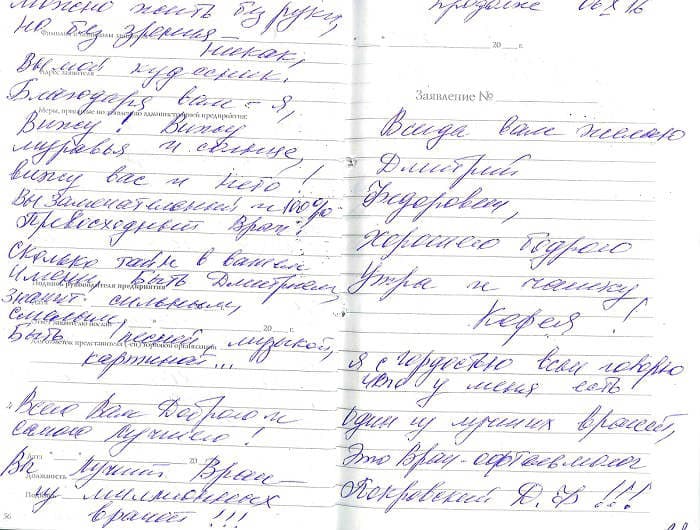 можно жить без руки,
но без зрения
никак,
Вы мой кудесник.
Адрес заявителя
Благодаря вам – я,
Меры, принятые по заявлению администрацией предприятия:
Вижу! Вижу
муравья и солнце,
вижу вас и лето!!
Вы замечательный и 100%
Превосходный Врач!
Сколько тайн в вашем
имени Быть Дмитрием,
Подпись руководителя предприятия
значит сильным,
смелым,
20 г.
Быть песней музыкой,
картиной...
Всего Вам Доброго и
самого лучшего!
Дата
20
Вы лучший Врач
Должность
из миллионных
врачей!!!
56
Продолж 06 X 16
" " 20 г.
Заявление №
Всегда вам желаю
Дмитрий
Федорович,
Хорошего бодрого
Утра и чашку
Кофея!
Я с гордостью всем говорю
что у меня есть
один из лучших врачей,
Это Врач-офтальмолог
Покровский Д.Ф!!!